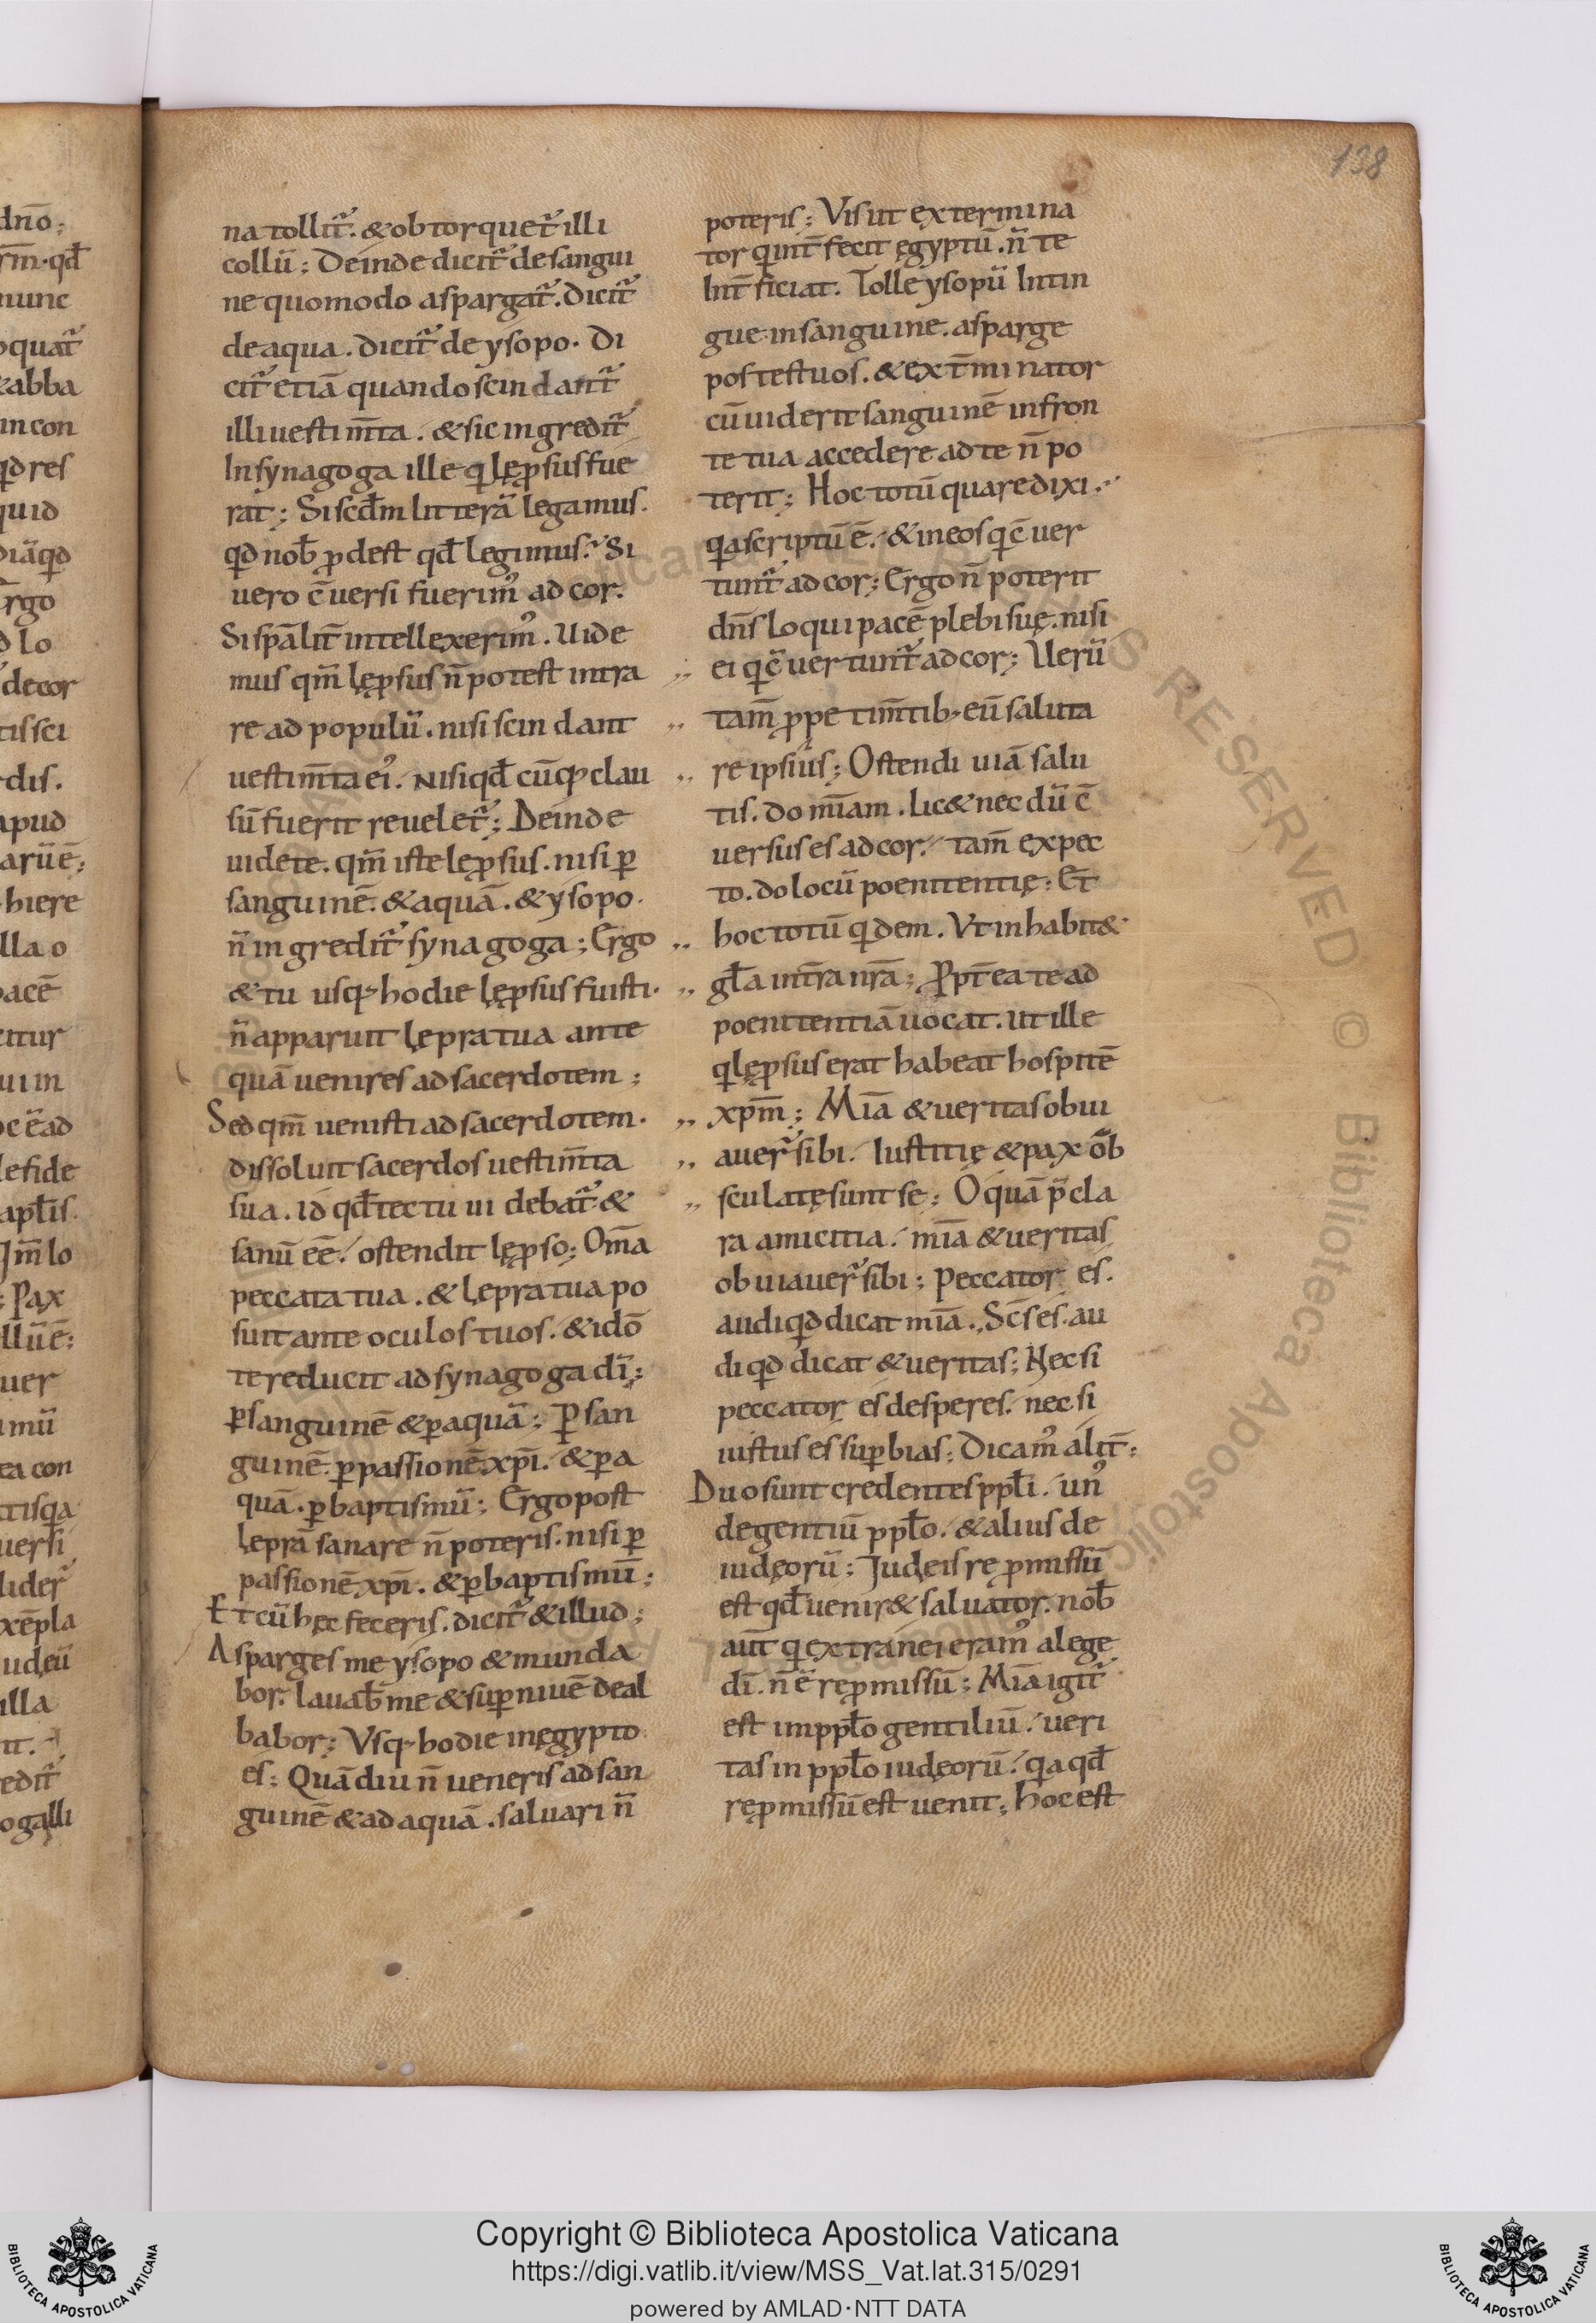 138
na tollit᷑. & obtorquet᷑ illi
collū; Deinde dicit᷑ de sangui
ne quomodo aspargat᷑. dicit᷑
de aqua. dicit᷑ de ysopo. Di
cit᷑ etiā quando scindant᷑
illi uestim̄ta. & sic ingredit᷑
In synagoga ille q lęp̱sus fue
rat; Si scd̄m litterā legamus.
qd nob̄ p̱dest qd̄ legimus. Si
uero c̄uersi fuerim᾽ ad cor.
Si sp̄alit̄ intellexerim᾽. Uide
mus qm̄ lęp̱sus n̄ potest intra
re ad populū. nisi scindant
uestim̄ta ei᾽. Nisi qd̄ cūq; clau
sū fuerit reuelet᷑; Deinde
uidete. qm̄ iste lęp̱sus. nisi p̱
sanguinē. & aquā. & ysopo.
n̄ ingredit᷑ synagoga; Ergo
& tu usq; hodie lęp̱sus fuisti.
n̄ apparuit lępra tua ante
quā uenires ad sacerdotem;
Sed qm̄ uenisti ad sacerdotem.
dissoluit sacerdos uestim̄ta
sua. id qd̄ tectū uidebat᷑. &
sanū eē. ostendit lęp̱so; Om̄a
peccata tua. & lępra tua po
suit ante oculos tuos. & idō
te reducit ad synagoga dī;
p̱ sanguinē & p̱ aquā; P̱ san
guinē. p̱ passionē xp̄i. & p̱ a
quā. p̱ baptismū; Ergo post
leprā sanare n̄ poteris. nisi p̱
passionē xp̄i. & p̱ baptismū;
Et cū hęc feceris. dicit᷑ & illud;
Asparges me ysopo & munda
bor. lauab̄ me & sup̱ niuē deal
babor; Vsq; hodie in ęgypto
es; Quādiu n̄ ueneris ad san
guinē & ad aquā. saluari n̄
poteris; Vis ut extermina
tor q int̄fecit ęgyptū. n̄ te
Int̄ficiat. Tolle ysopū Intin
gue in sanguine. asparge
postes tuos. & ext̄minator
cū uiderit sanguinē in fron
te tua accedere ad te n̄ po
terit; Hoc totū quare dixi.
qa scriptū ē. & in eos q c̄uer
tunt᷑ ad cor; Ergo n̄ poterit
dn̄s loqui pacē plebi suę. nisi
ei q c̄uertunt᷑ ad cor; Uerū
tam̄ p̱pe tim̄tib; eū saluta
re ipsius; Ostendi uiā salu
tis. do mīam. lic& nec dū c̄
uersus es ad cor. tam̄ expec
to. do locū poenitentię; Et
hoc totū q dem. Vt inhabit&
gl̄a int̄ra nr̄a; P̱pt̄ea te ad
poenitentiā uocat. ut ille
q lęp̱sus erat habeat hospitē
xp̄m; Mīa & ueritas obui
auer᷑ sibi. Iustitię & pax ob
sculatę sunt se; O quā p̄cla
ra amicitia. mīa & ueritas
obuiauer᷑ sibi; Peccator es.
audi qd dicat mīa. Sc̄s es. au
di qd dicat & ueritas; Nec si
peccator es desperes. nec si
iustus es sup̱bias; Dicam᾽ alit̄;
Duo sunt credentes ppl̄i. un᾽
de gentiū ppl̄o. & alius de
iudęorū; Judęis rep̱missū
est qd̄ uenir& saluator. nob̄
aut̄ q extranei eram᾽ a lege
dī. n̄ ē rep̱missū; Mīa igit᷑
est in ppl̄o gentiliū. ueri
tas in ppl̄o iudęorū. qa qd̄
rep̱missū est uenit; hoc est
Copyright © Biblioteca Apostolica Vaticana
https://digi.vatlib.it/view/MSS_Vat.lat.315/0291
powered by AMLAD·NTT DATA